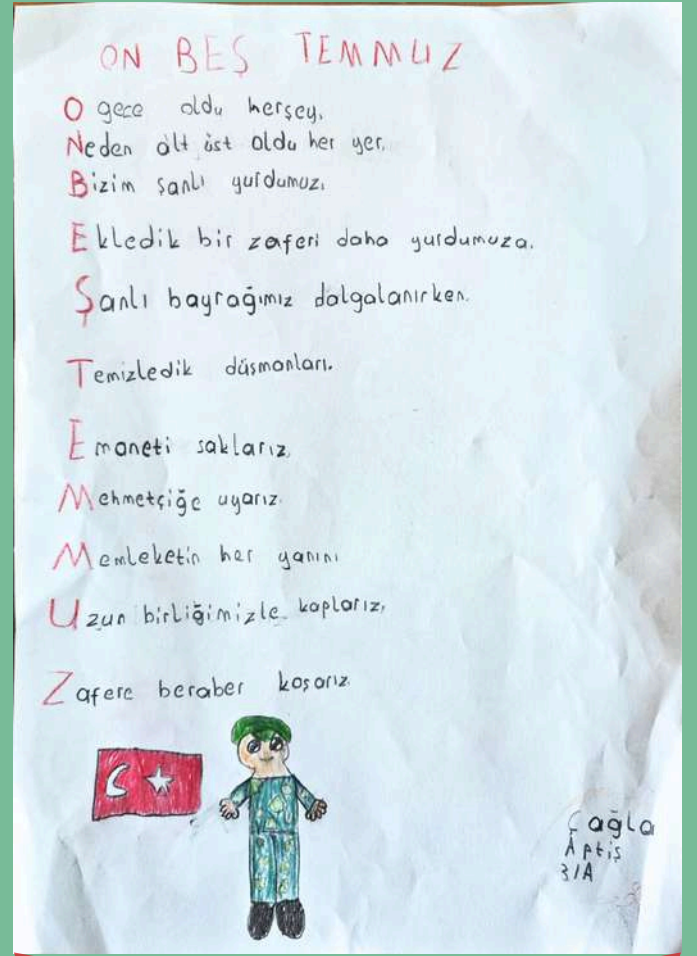 ON BEŞ TEMMUZ
O gece oldu herşey,
Neden alt üst oldu her yer,
Bizim şanlı yurdumuz,
Ekledik bir zaferi daha yurdumuza.
Şanlı bayrağımız dalgalanırken.
Temizledik düşmanları.
Emaneti saklarız,
Mehmetçiğe uyarız.
Memleketin her yanını
Uzun birliğimizle kaplarız,
Zafere beraber koşarız.
Çağla
Aptiş
3/A